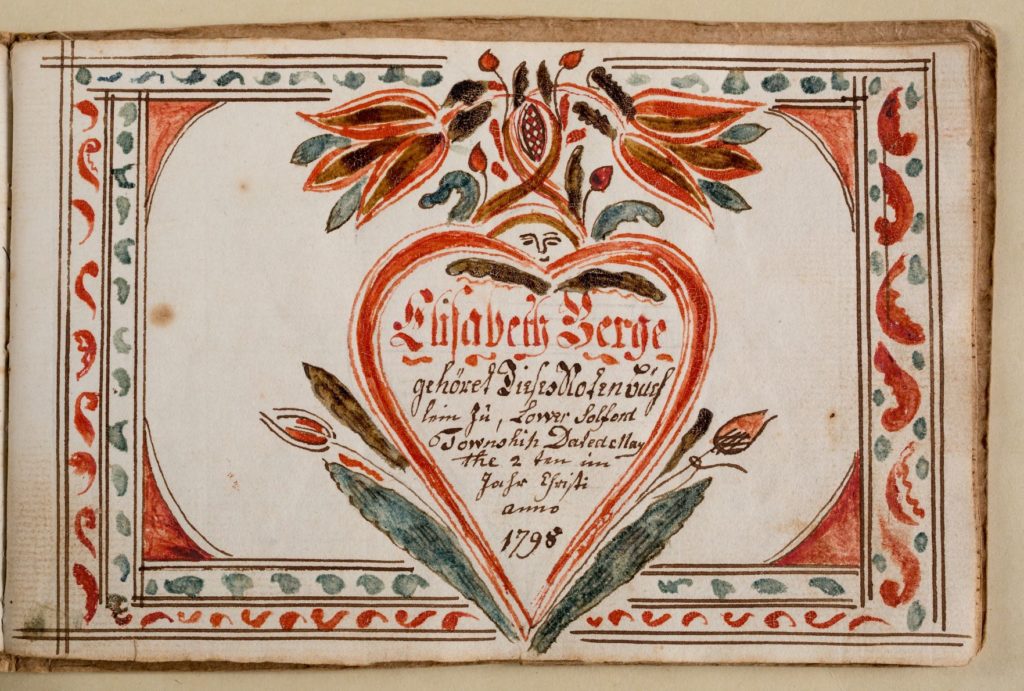 Elisabeth Berge
gehöret Dieses Noten büch
lein Zu, Lower Solford
Township Dated May
the 2 ten im
Jahr Christi
anno
1798